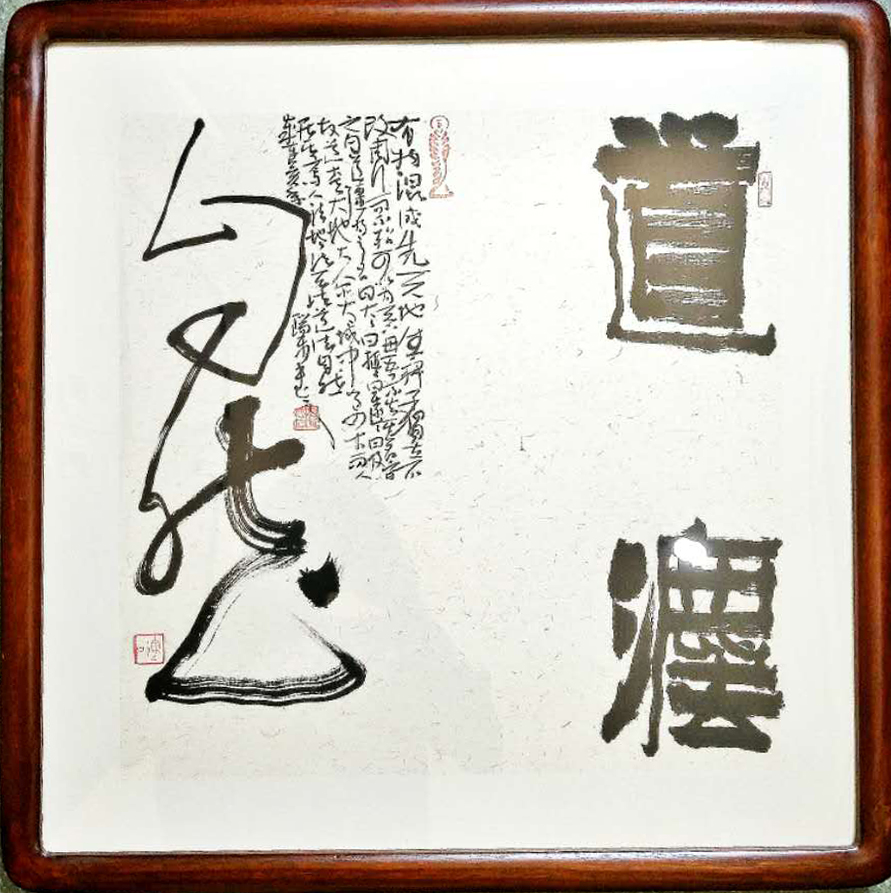 道灋
有物混成先天地生寂兮寥兮獨立不
改周行而不殆可以为天下母吾不知其名字
之曰道彊为之名曰大大曰逝逝曰遠遠曰反
故道大天大地大人亦大域中有四大而人
居其一焉人法地地法天天法道道法自然
自然